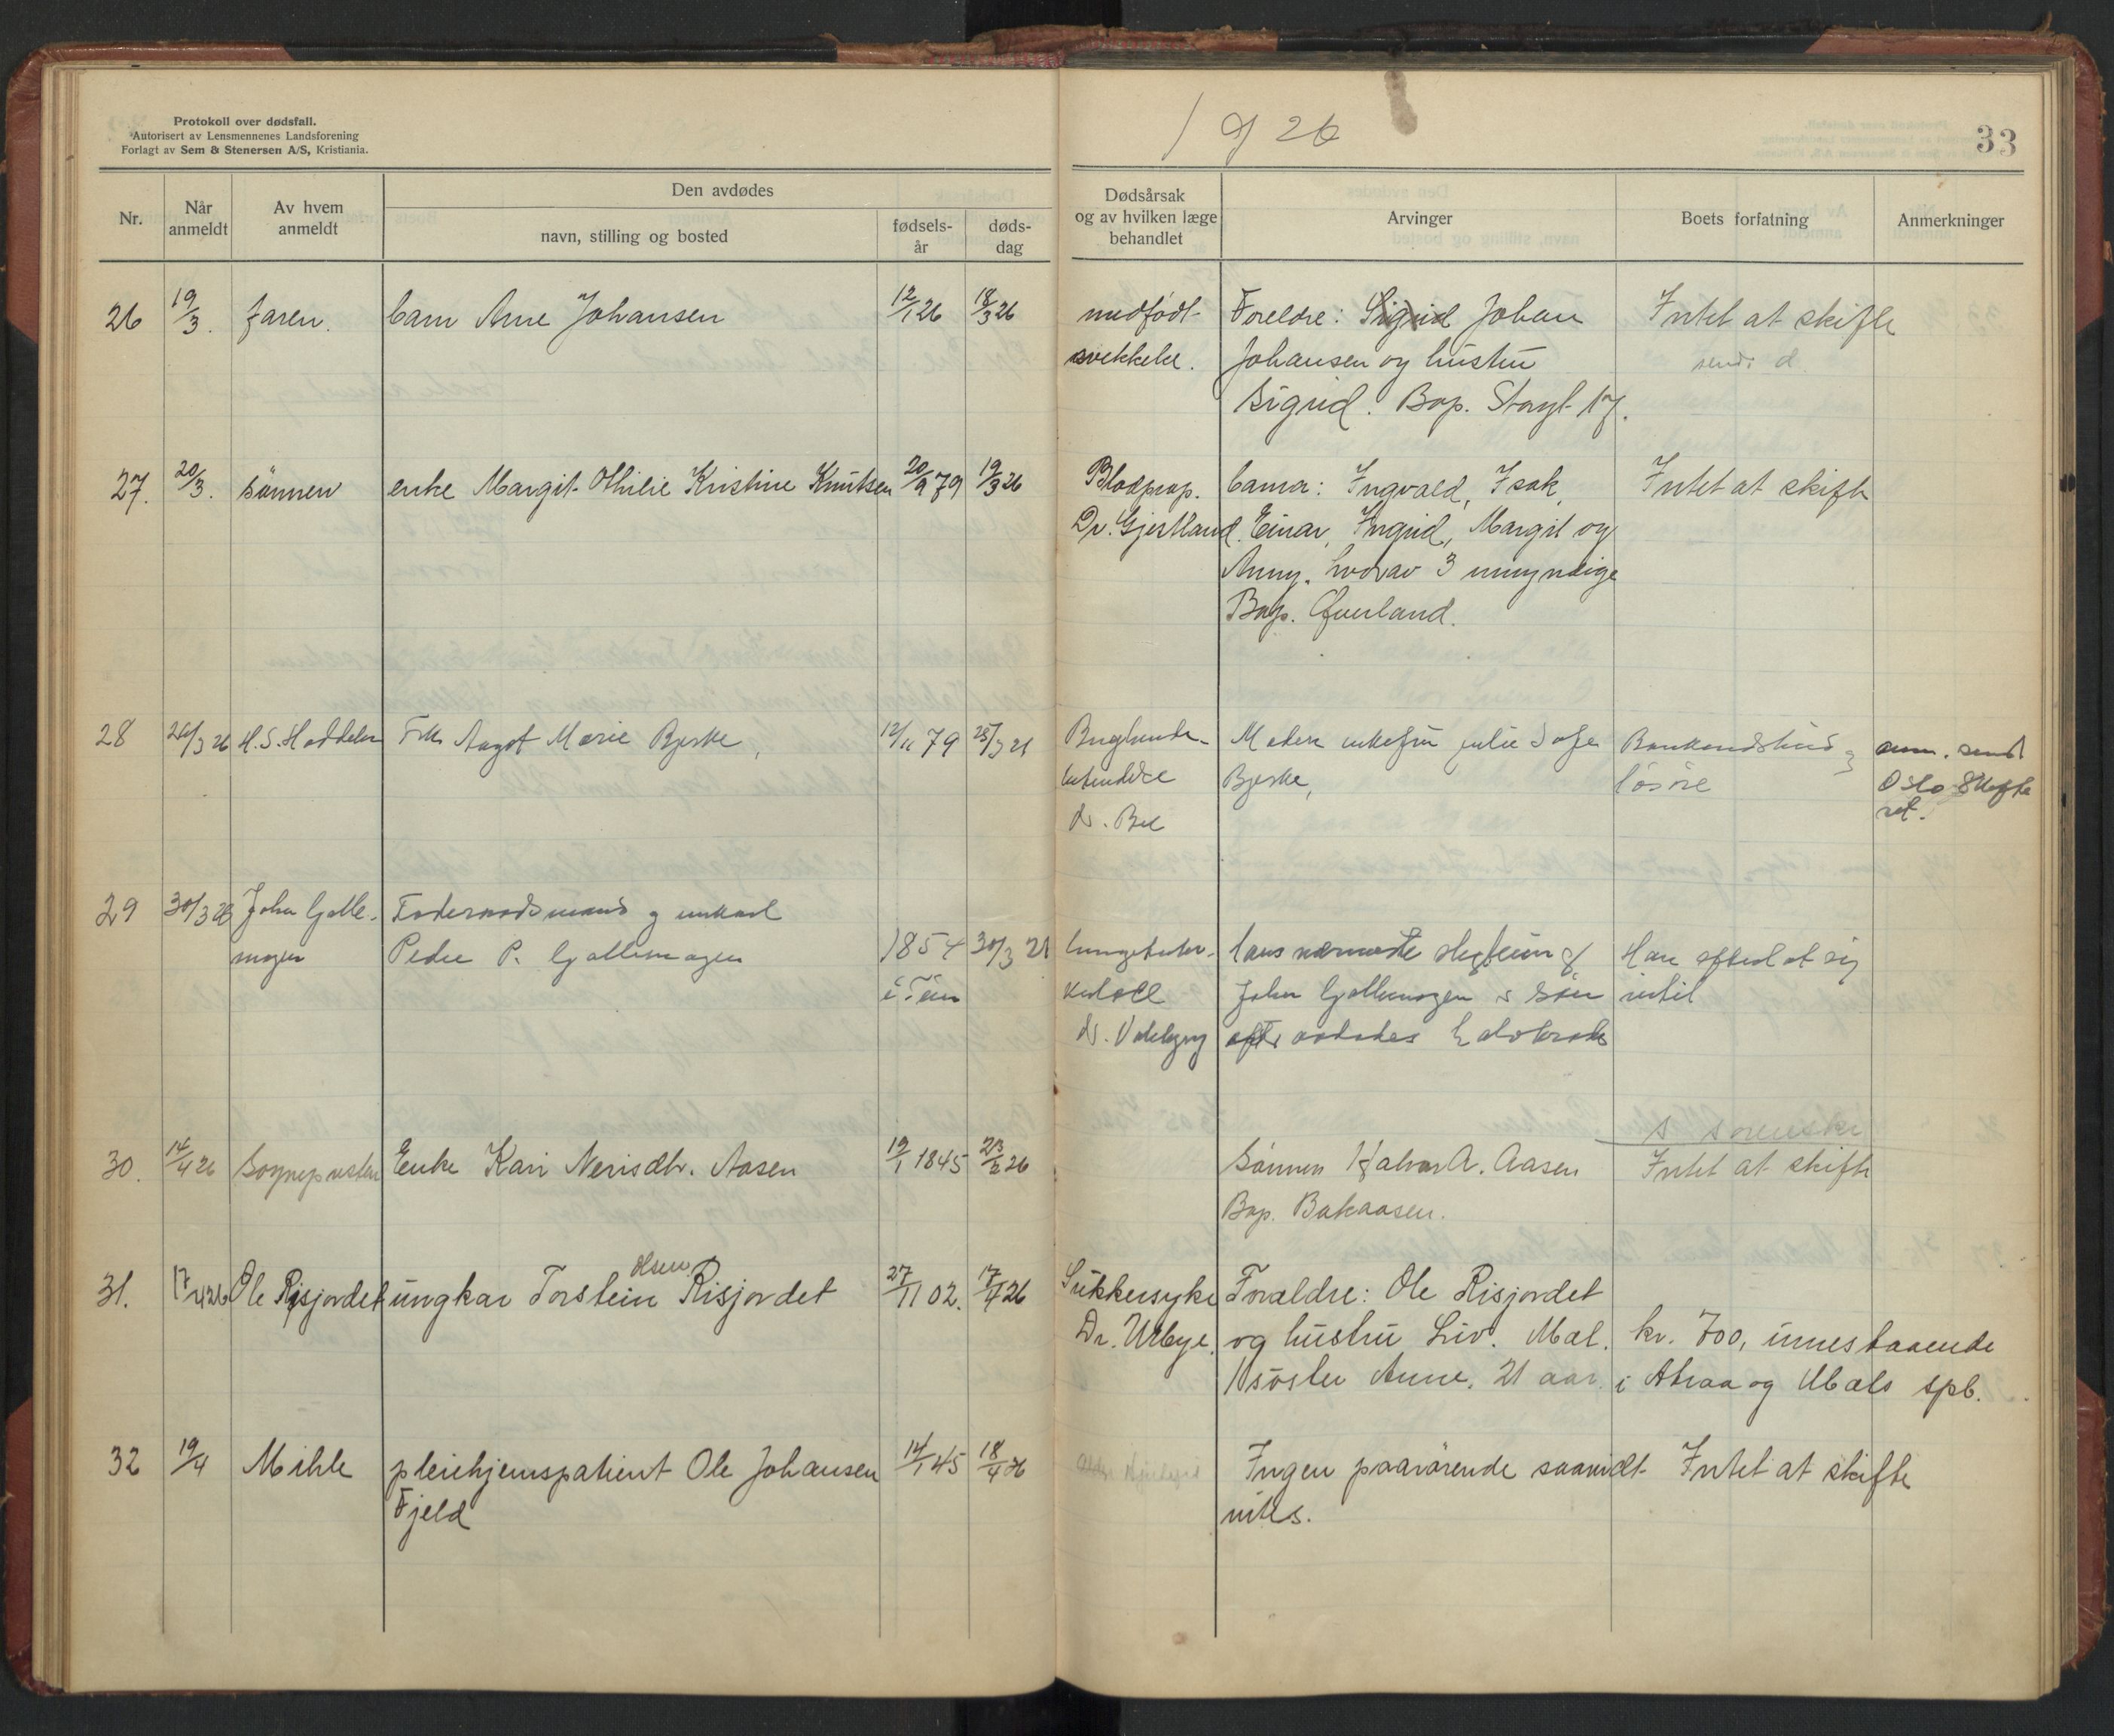 Protokoll over dødsfall.
Autorisert av Lensmennenes Landsforening
Forlagt av Sem & Stenersen A/S, Kristiania.
1926
33
Nr.
Når anmeldt
Av hvem anmeldt
Den avdødes
navn, stilling og bosted
fødsels-år
døds-dag
Dødsårsak og av hvilken læge behandlet
Arvinger
Boets forfatning
Anmerkninger
26 19/3. faren. barn Arne Johansen 12/1 26 18/3 26 medfødt Foreldre: Sigrid Johan Intet at skifte
svekkelse. Johansen og hustru
Sigrid. Bop. 17.
27. 20/3. sönnen enke Margit Othilie Kristine Knutsen 20/9 79 19/3 26 Blodprop. barna: Ingvald, Isak, Intet at skifte
Dr. Gjestland. Einar, Ingrid, Margit og
Anny. hvorav 3 umyndige
Bop. Qverland.
28 26/3 26 H.S. Frk Aagot Marie Bjerke, 12/11 79 25/3 26 Moderen enkefru Julie Bjerke,
lösöre
anm. sendt
Oslo Skifte
ret.
dr.
29 30/3 26 John Golle-
mogen
Foderaadsmand og unkarl
Peder P. Gollemogen 1854 30/3 26
i Tinn
hans nærmeste
John Gollemogen sön
efter avdødes
intet
dr.
30. 14/4 26 Sognepresten Enke Kari Nerisdtr. Aasen 19/1 1845 23/2 26 Sönnen Halvor A. Aasen Intet at skifte
Bop. Bakaasen.
31. 17/4 26 Ole Risjordet ungkar Torstein Olsen Risjordet 27/11 02. 17/4 26 Sukkersyke Forældre: Ole Risjordet
Dr. Utbye. og hustru Liv. Mæl. kr. 700, innestaaende
1 söster Anne, 21 aar. i Atraa og Mæls spb.
32 19/4 Mihle pleiehjemspatient Ole Johansen 14/1 45 18/4 26 Ingen paarörende saavidt Intet at skifte
Fjeld vites.